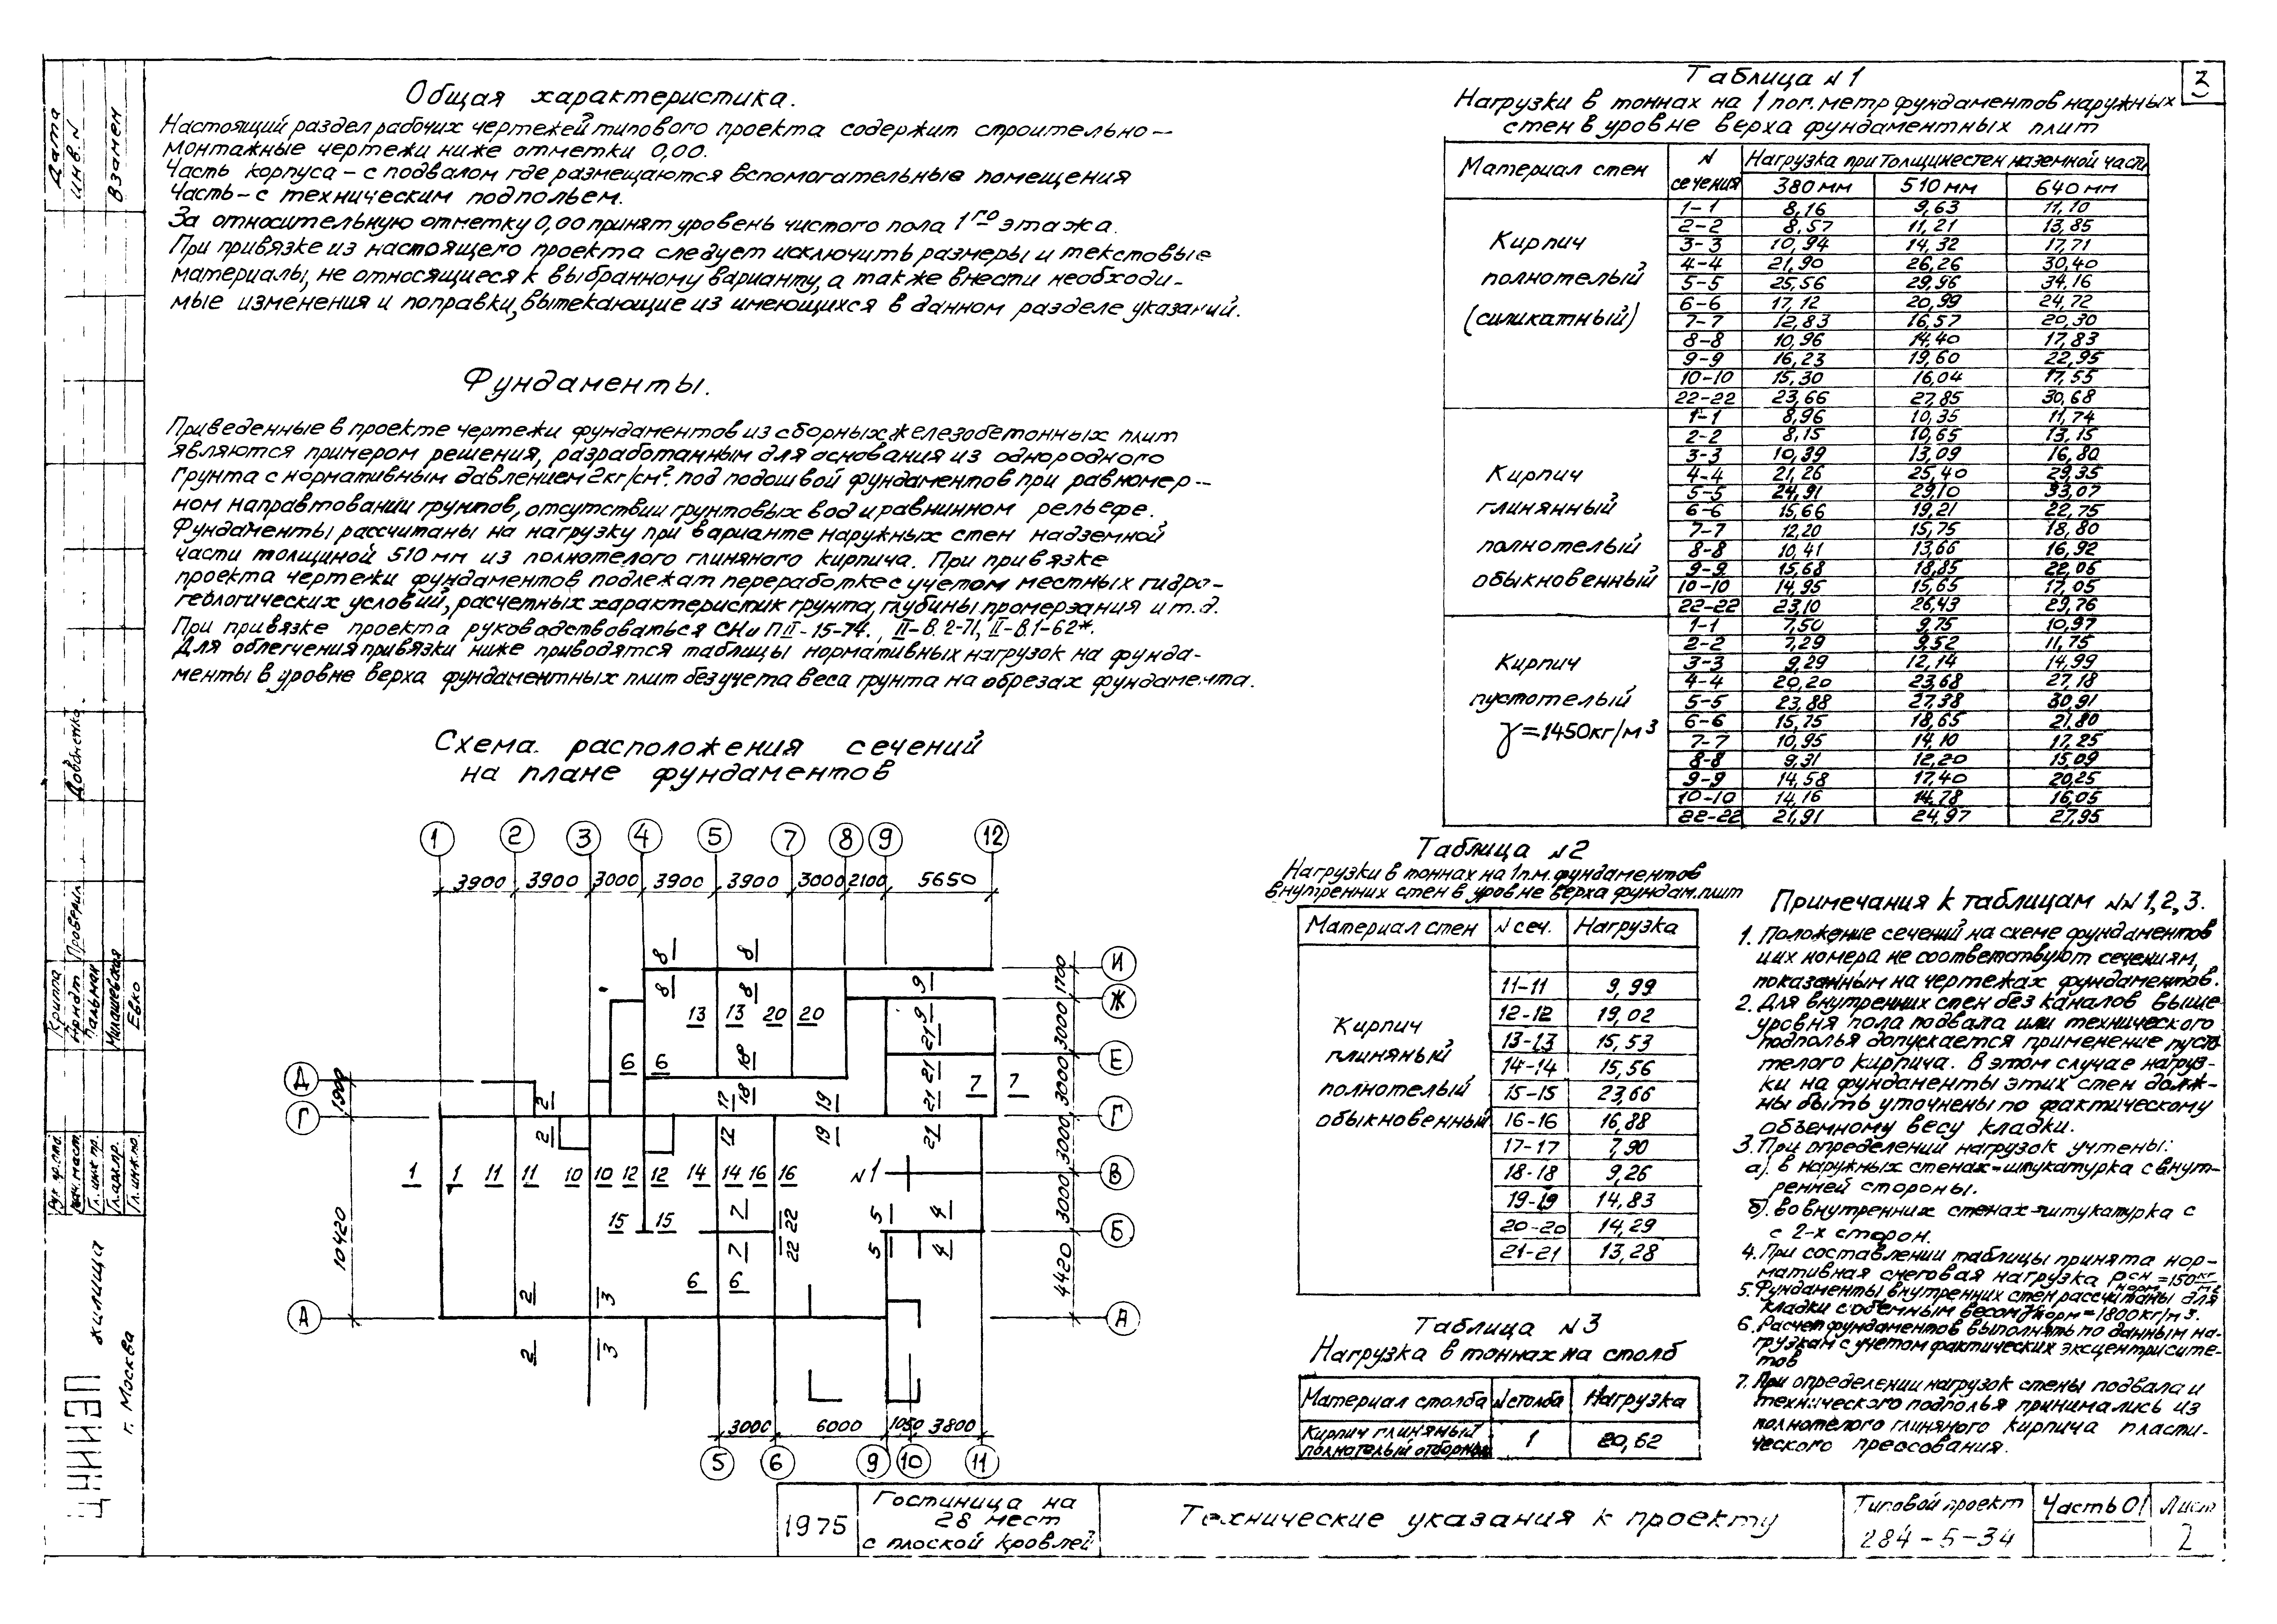 Общая характеристика.
Настоящий раздел рабочих чертежей типового проекта содержит строительно-
монтажные чертежи ниже отметки 0,00.
Часть корпуса – с подвалом где размещаются вспомогательные помещения
Часть – с техническим подпольем.
За относительную отметку 0,00 принят уровень чистого пола 1го этажа.
При привязке из настоящего проекта следует исключить размеры и текстовые
материалы, не относящиеся к выбранному варианту, а также внести необходи-
мые изменения и поправки, вытекающие из имеющихся в данном разделе указаний.
Фундаменты.
Приведенные в проекте чертежи фундаментов из сборных железобетонных плит
являются примером решения, разработанным для основания из однородного
грунта с нормативным давлением 2кг/см². под подошвой фундаментов при равномер-
ном направтовании грунтов, отсутствии грунтовых вод и равнинном рельефе.
Фундаменты рассчитаны на нагрузку при варианте наружных стен надземной
части толщиной 510 мм из полнотелого глиняного кирпича. При привязке
проекта чертежи фундаментов подлежат переработке с учетом местных гидро-
геологических условий, расчетных характеристик грунта, глубины промерзания и т.д.
При привязке проекта руководствоваться СНиП II-15-74., II-В.2-71, II-В.1-62*.
Для облегчения привязки ниже приводятся таблицы нормативных нагрузок на фунда-
менты в уровне верха фундаментных плит без учета веса грунта на обрезах фундамента.
Схема расположения сечений
на плане фундаментов
1 2 3 4 5 7 8 9 12
3900 3900 3000 3900 3900 3000 2100 5650
И Ж Е Г В Б А
Д Г А
1900 10420
1700 3000 3000 3000 3000 4420
8 8 8 8 9 9
13 13 20 20
6 6 18 18 21 21 21 21 7 7
2 2 17 17 19 19
1 1 11 11 10 10 12 12 14 14 16 16 N1
15 15 7 7 22 22 5 5 4 4
6 6
2 2 3 3
3000 6000 1050 3800
5 6 9 10 11
Таблица N1
Нагрузки в тоннах на 1 пог. метр фундаментов наружных
стен в уровне верха фундаментных плит
Материал стен N сечения Нагрузка при толщине стен наземной части
380 мм 510 мм 640 мм
Кирпич полнотелый (силикатный)
1-1 8,16 9,63 11,10
2-2 8,57 11,21 13,85
3-3 10,94 14,32 17,71
4-4 21,90 26,26 30,40
5-5 25,56 29,96 34,16
6-6 17,12 20,99 24,72
7-7 12,83 16,57 20,30
8-8 10,96 14,40 17,83
9-9 16,23 19,60 22,95
10-10 15,30 16,04 17,55
22-22 23,66 27,85 30,68
Кирпич глинянный полнотелый обыкновенный
1-1 8,96 10,35 11,74
2-2 8,15 10,65 13,15
3-3 10,39 13,09 16,80
4-4 21,26 25,40 29,35
5-5 24,91 29,10 33,07
6-6 15,66 19,21 22,75
7-7 12,20 15,75 18,80
8-8 10,41 13,66 16,92
9-9 15,68 18,85 22,06
10-10 14,95 15,65 17,05
22-22 23,10 26,43 29,76
Кирпич пустотелый γ=1450кг/м³
1-1 7,50 9,75 10,97
2-2 7,29 9,52 11,75
3-3 9,29 12,14 14,99
4-4 20,20 23,68 27,18
5-5 23,88 27,38 30,91
6-6 15,75 18,65 21,80
7-7 10,95 14,10 17,25
8-8 9,31 12,20 15,09
9-9 14,58 17,40 20,25
10-10 14,16 14,78 16,05
22-22 21,91 24,97 27,95
Таблица N2
Нагрузки в тоннах на 1п.м. фундаментов
внутренних стен в уровне верха фундам. плит
Материал стен N сеч. Нагрузка
Кирпич глиняный полнотелый обыкновенный
11-11 9,99
12-12 19,02
13-13 15,53
14-14 15,56
15-15 23,66
16-16 16,88
17-17 7,90
18-18 9,26
19-19 14,83
20-20 14,29
21-21 13,28
Таблица N3
Нагрузка в тоннах на столб
Материал столба N столба Нагрузка
Кирпич глиняный полнотелый отборный 1 20,62
Примечания к таблицам NN 1, 2, 3.
1. Положение сечений на схеме фундаментов
и их номера не соответствуют сечениям,
показанным на чертежах фундаментов.
2. Для внутренних стен без каналов выше
уровня пола подвала или технического
подполья допускается применение пусто
телого кирпича. В этом случае нагруз-
ки на фундаменты этих стен долж-
ны быть уточнены по фактическому
объемному весу кладки.
3. При определении нагрузок учтены:
а). в наружных стенах – штукатурка с внут-
ренней стороны.
б). во внутренних стенах – штукатурка с
с 2-х сторон.
4. При составлении таблицы принята нор-
мативная снеговая нагрузка Pсн норм = 150 кг/м²
5. Фундаменты внутренних стен рассчитаны для
кладки с объемным весом γнорм = 1800кг/м³.
6. Расчет фундаментов выполнять по данным на-
грузкам с учетом фактических эксцентрисите-
тов
7. При определении нагрузок стены подвала и
технического подполья принимались из
полнотелого глиняного кирпича пласти-
ческого прессования.
1975
Гостиница на
28 мест
с плоской кровлей
Технические указания к проекту
Типовой проект
284-5-34
Часть 01
Лист
2
3
Дата
инв. N
Взамен
Проверил
Криппа
Арндт
Пальман
Милашевская
Евко
Нач. маст.
Гл. инж пр.
Гл. арх. пр.
Гл. инж. по
жилища
г. Москва